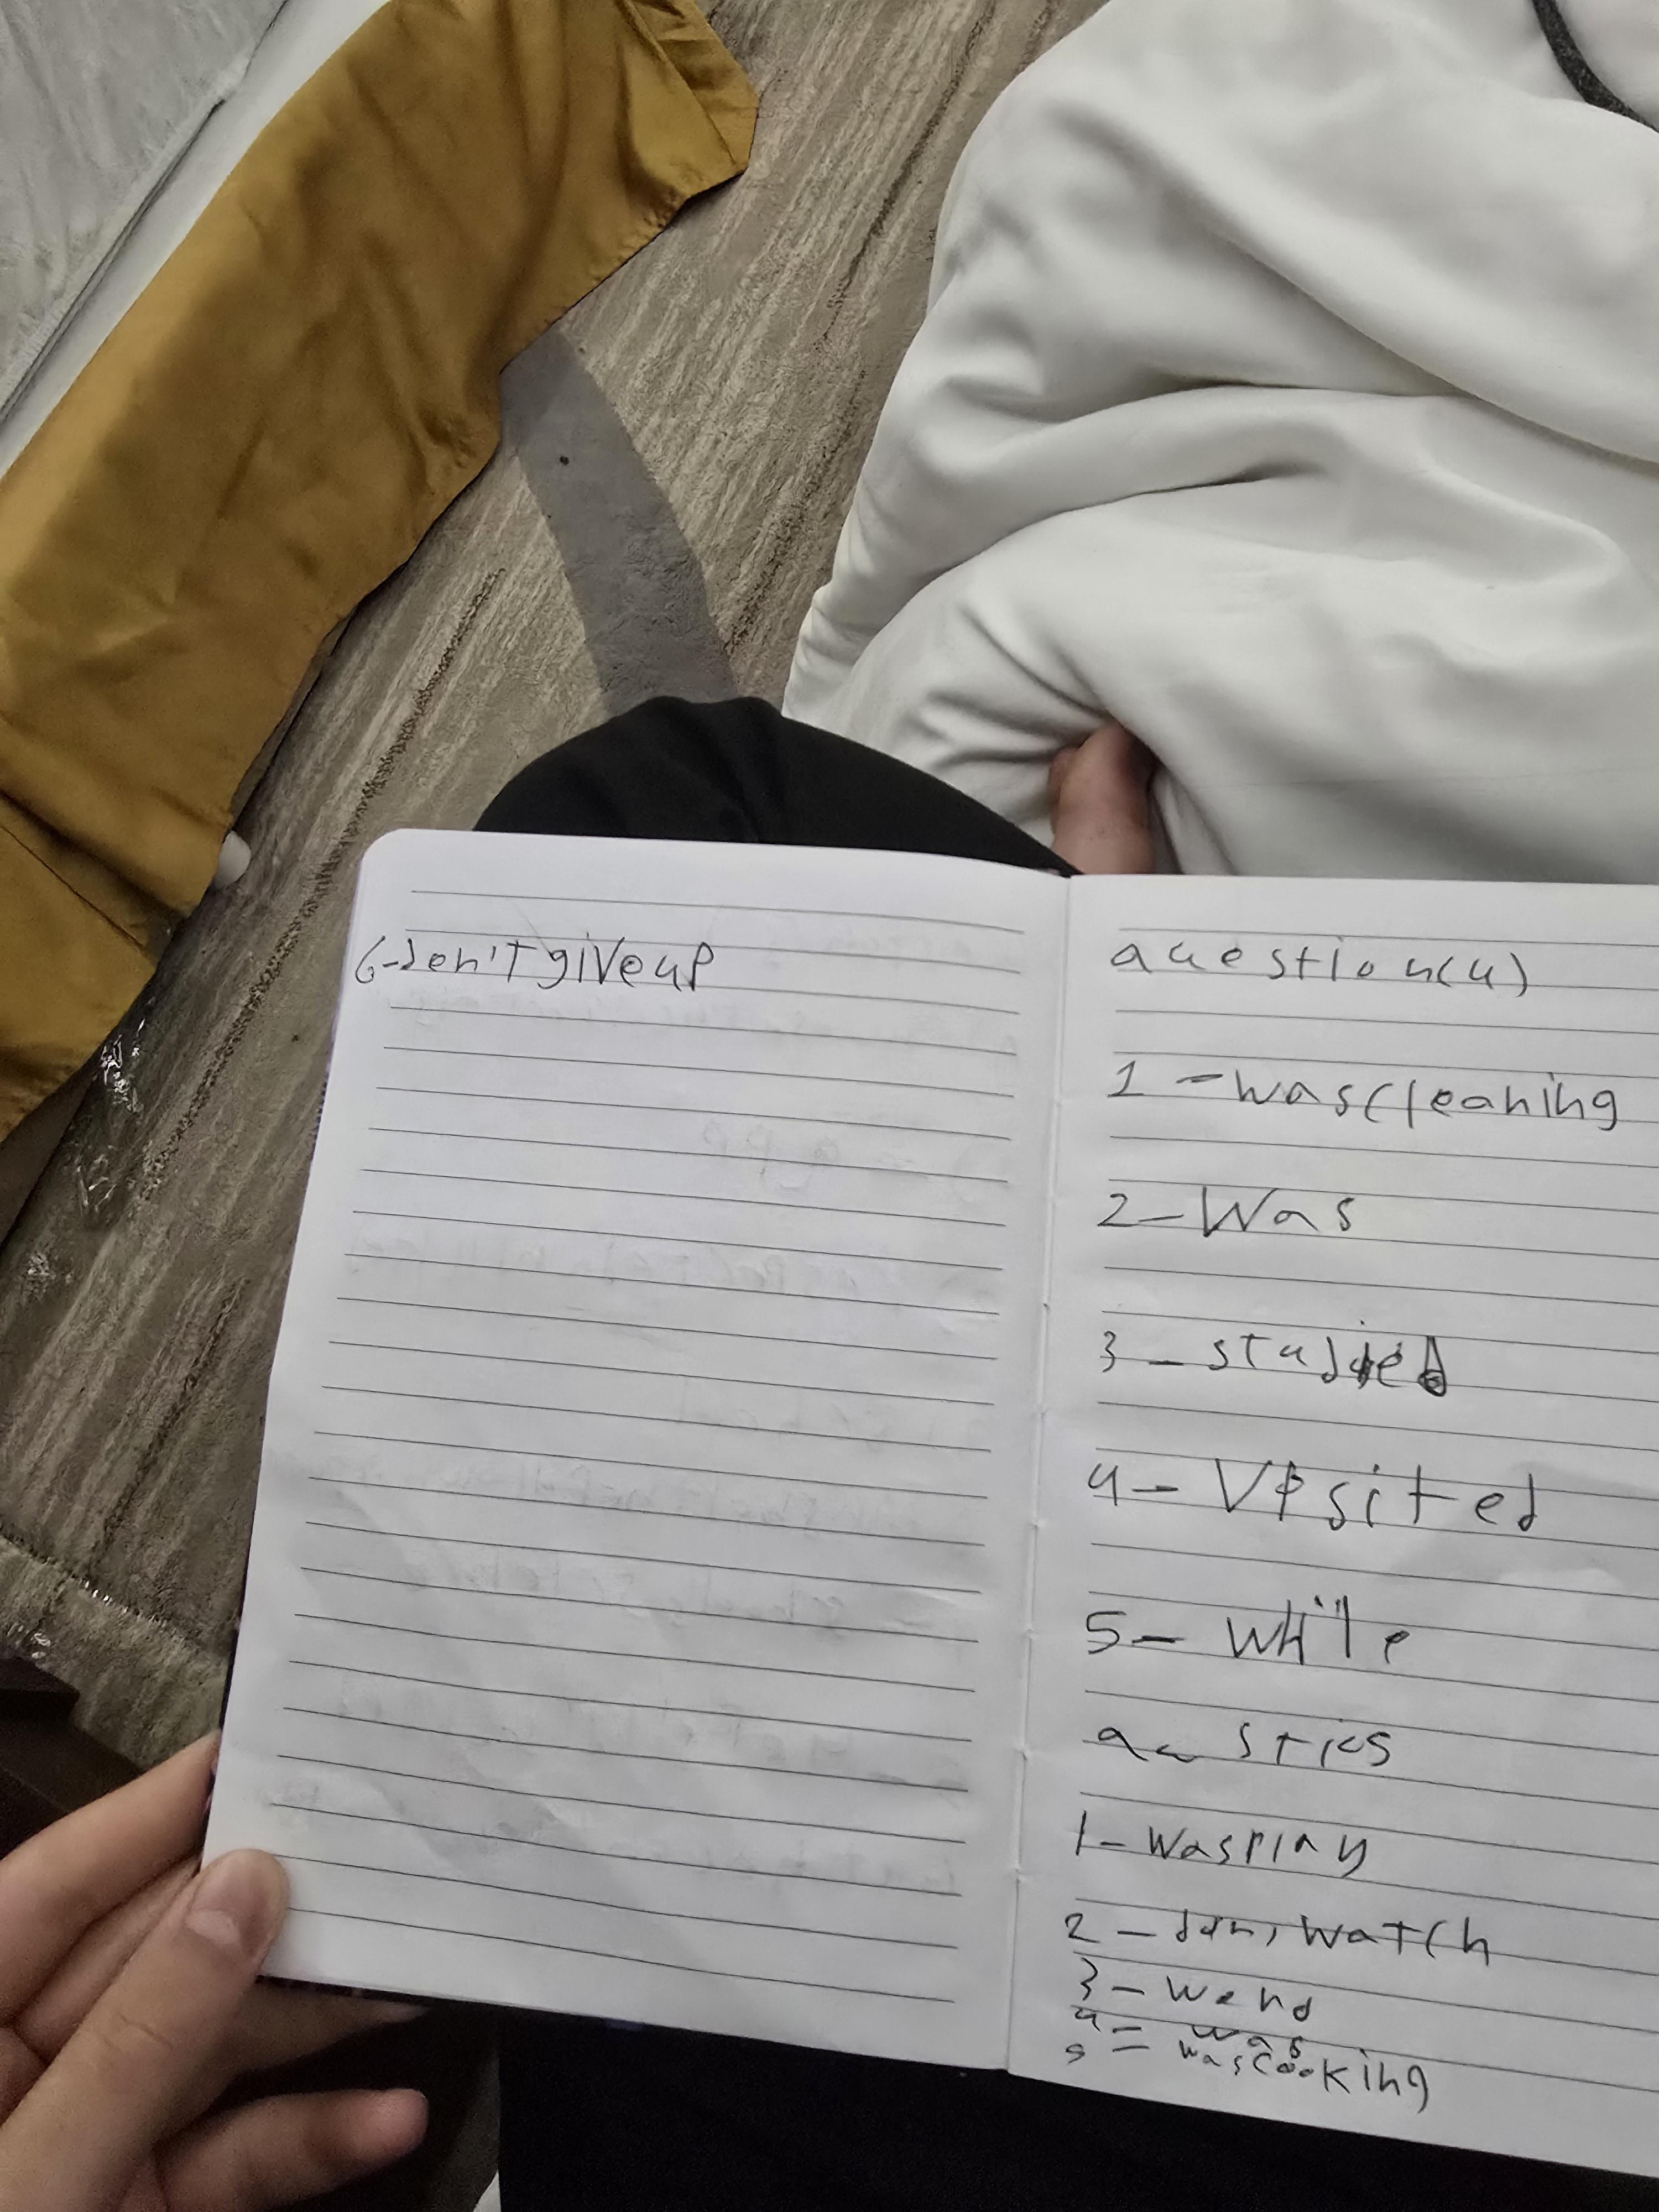 6-don't give up
question(4)
1 - was cleaning
2 - Was
3 - studied
4 - Visited
5 - while
1 - was play
2 - watch
3 -
4 - was
5 - was cooking